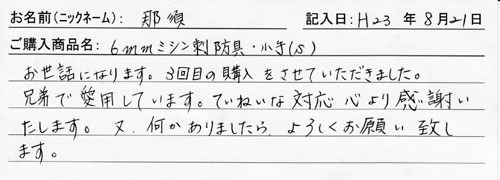 お名前(ニックネーム): 那須 記入日: H23 年 8月21日
ご購入商品名: 6mmミシン刺防具・小手(S)
お世話になります。3回目の購入をさせていただきました。
兄弟で愛用しています。ていねいな対応心より感謝い
たします。又、何かありましたら、よろしくお願い致し
ます。